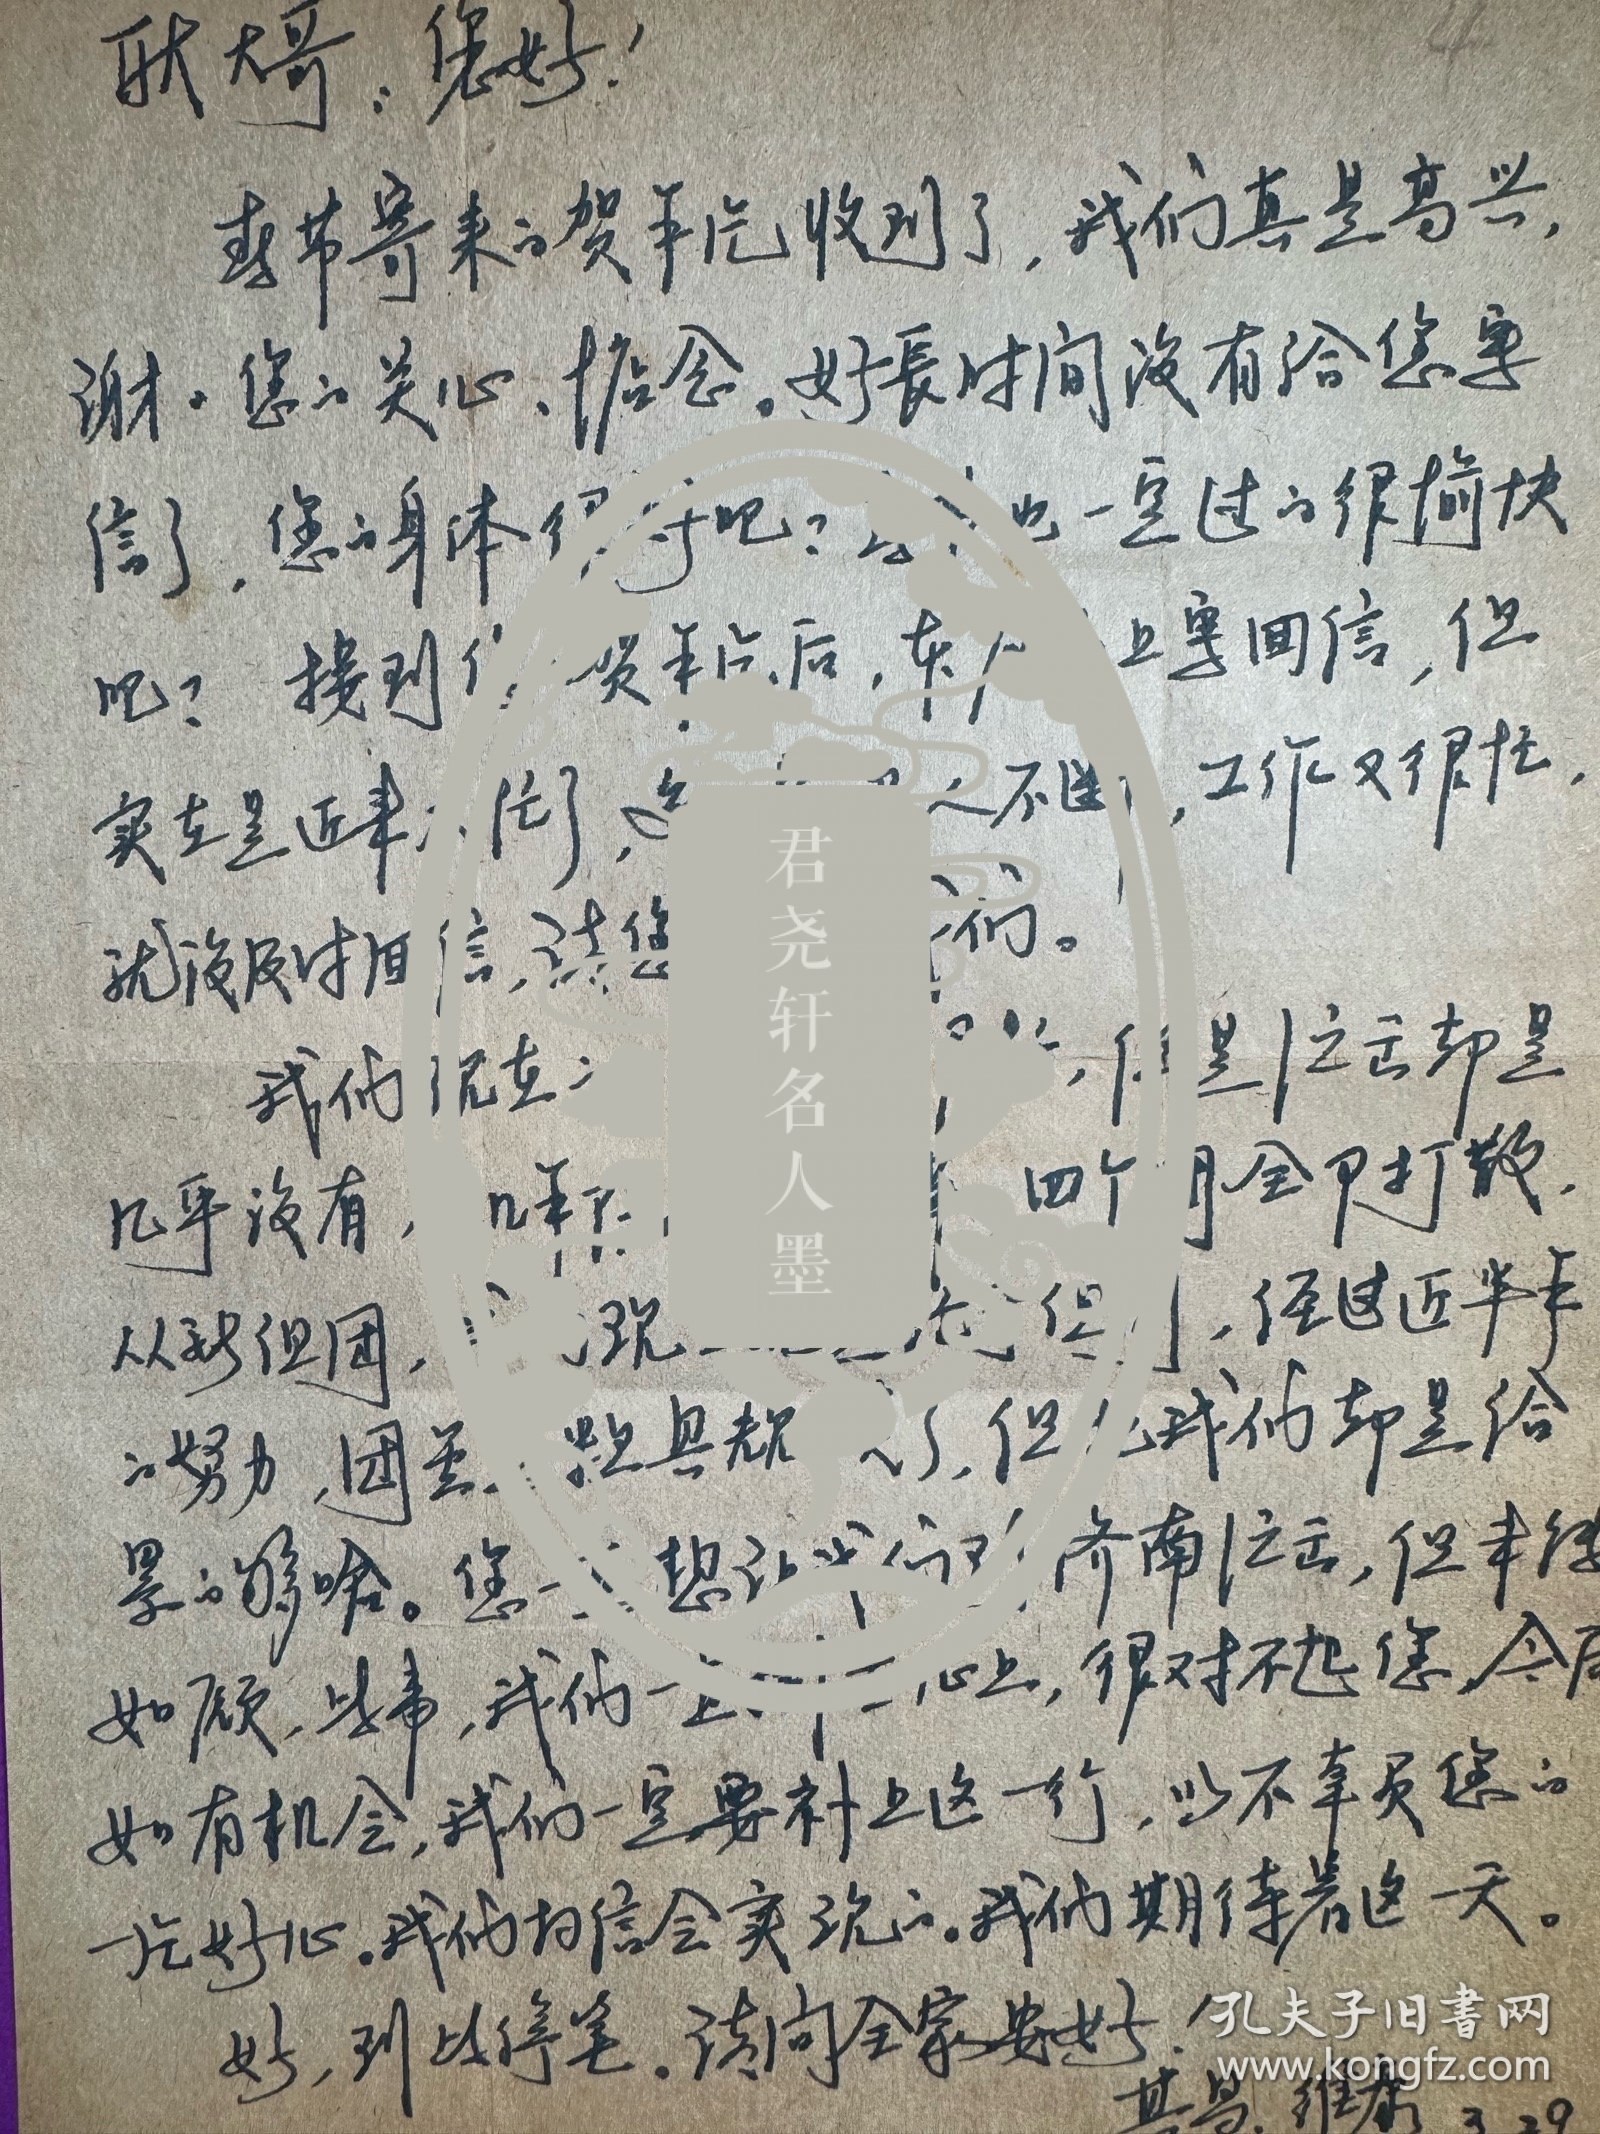 耿大哥：您好！
春节寄来的贺年片收到了，我们真是高兴，
谢谢您的关心、惦念。好長时间没有给您写
信了，您的身体很好吧？春节也一定过的很愉快
吧？接到您的贺年片后，本应马上写回信，但
实在是近来太忙了，家里人不断，工作又很忙，
就没及时回信，请您原谅我们。
我们现在，但是演出却是
几乎没有，四个月全部打散，
从新组团，现组到，经过近半年
的努力，团里已具规模了，但是我们却是给
累的够呛。您一直想让我们到济南演出，但未能
如愿，此事，我们一直挂在心上，很对不起您，今后
如有机会，我们一定要补上这一行，以不辜负您的
一片好心。我们相信会实现的。我们期待着这一天。
好，到此停笔。请问全家安好！
其昌、维康 3.29
君尧轩名人墨
孔夫子旧书网
www.kongfz.com